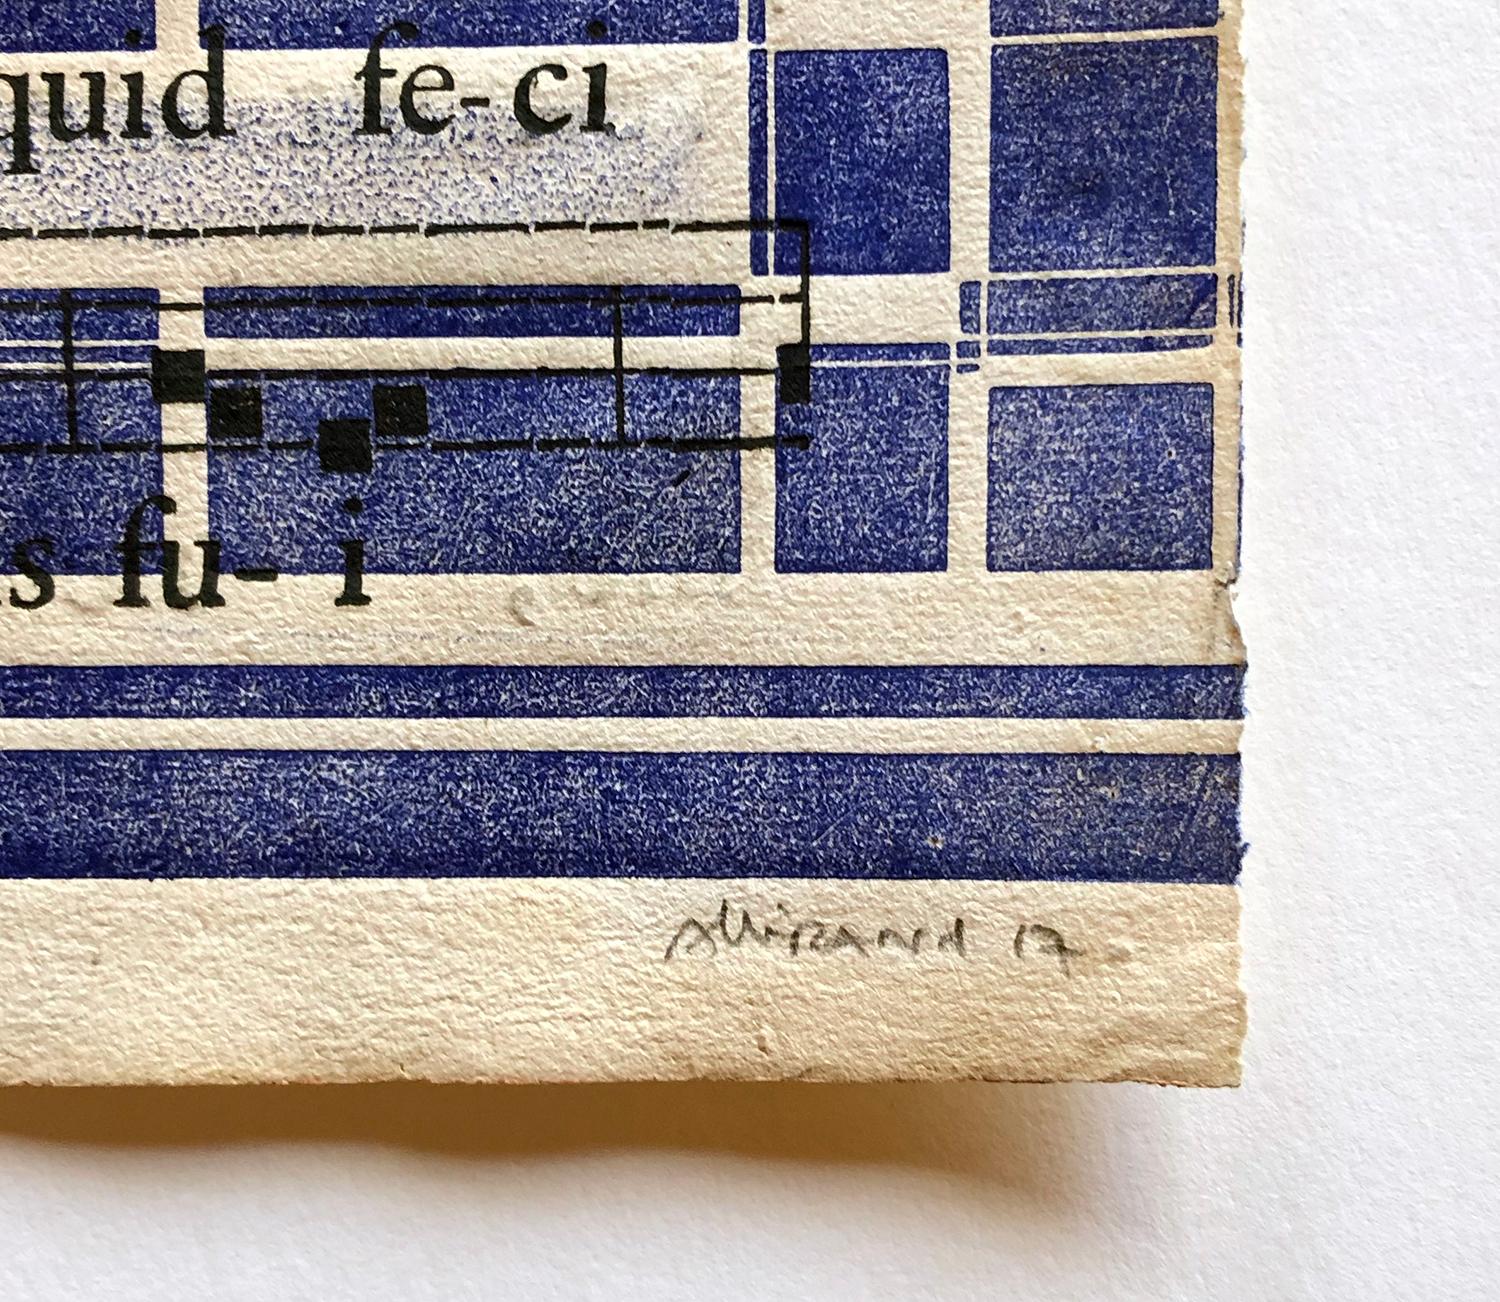 quid fe-ci
s fu- i
Allirand 17